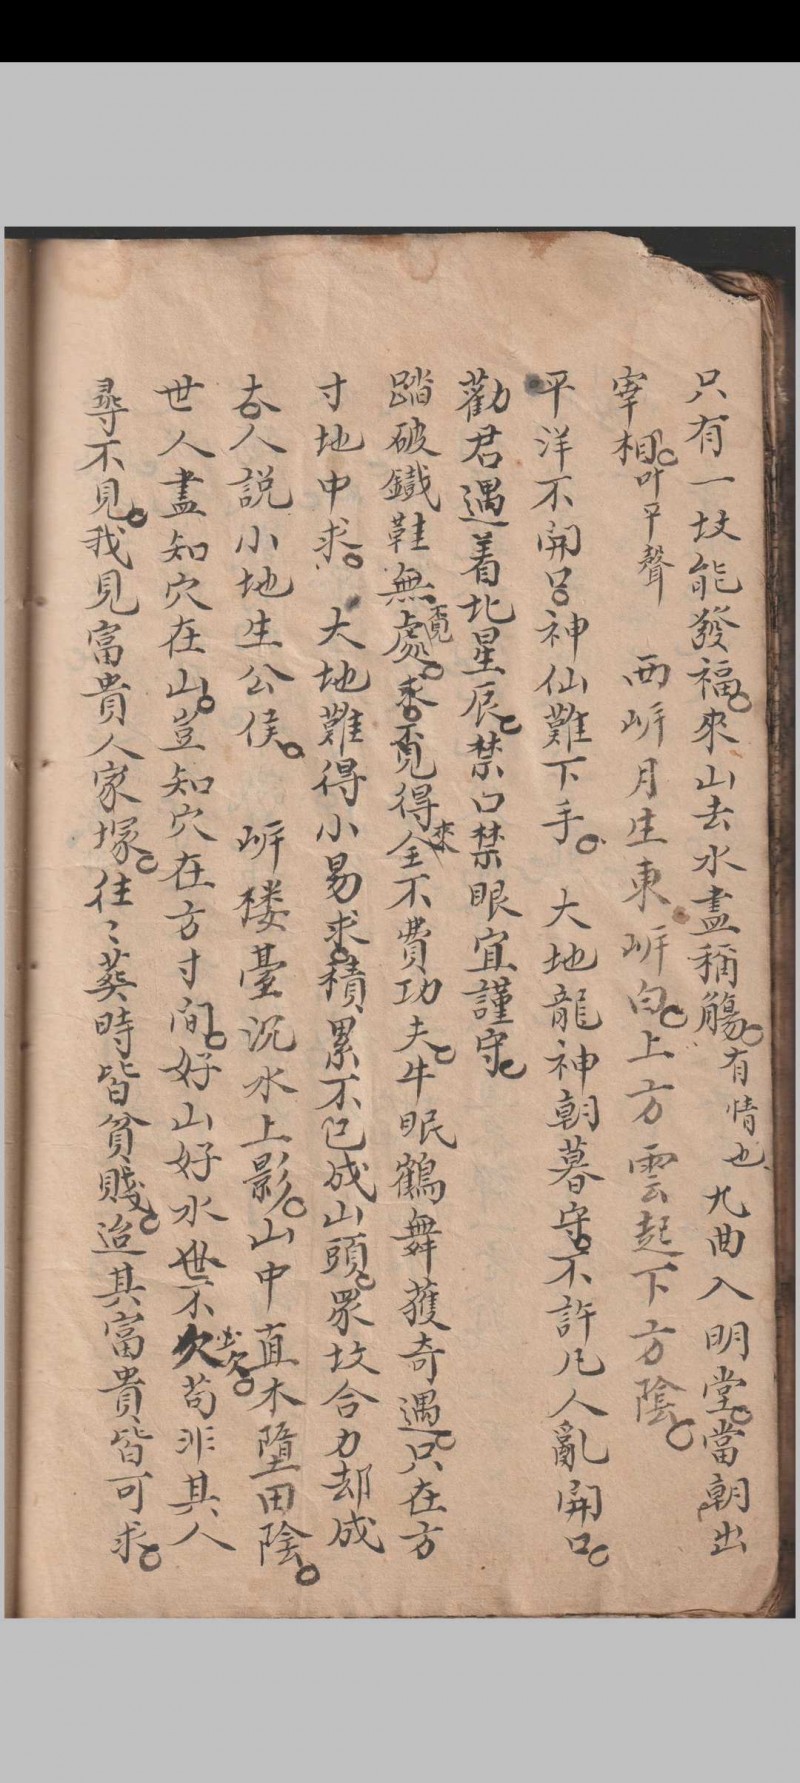 只有一坟能發福來山去水盡稱觴有情也九曲入明堂當朝出
宰相叶平聲 西岍月生東岍白上方雲起下方陰
平洋不開口神仙難下手 大地龍神朝暮守不許凡人亂開口
勸君遇着北星辰禁口禁眼宜謹守
踏破鐵鞋無處覓覓得來全不費功夫牛眠鶴舞蒦奇遇只在方
寸地中求 大地難得小易求積累不已成山頭眾坟合力却成
大人說小地生公侯 岍楼臺沉水上影山中直木墮田陰
世人盡知穴在山豈知穴在方寸间好山好水世不欠苟非其人
尋不見我見富貴人家塚往〻葵時皆貧賤迨其富貴皆可求